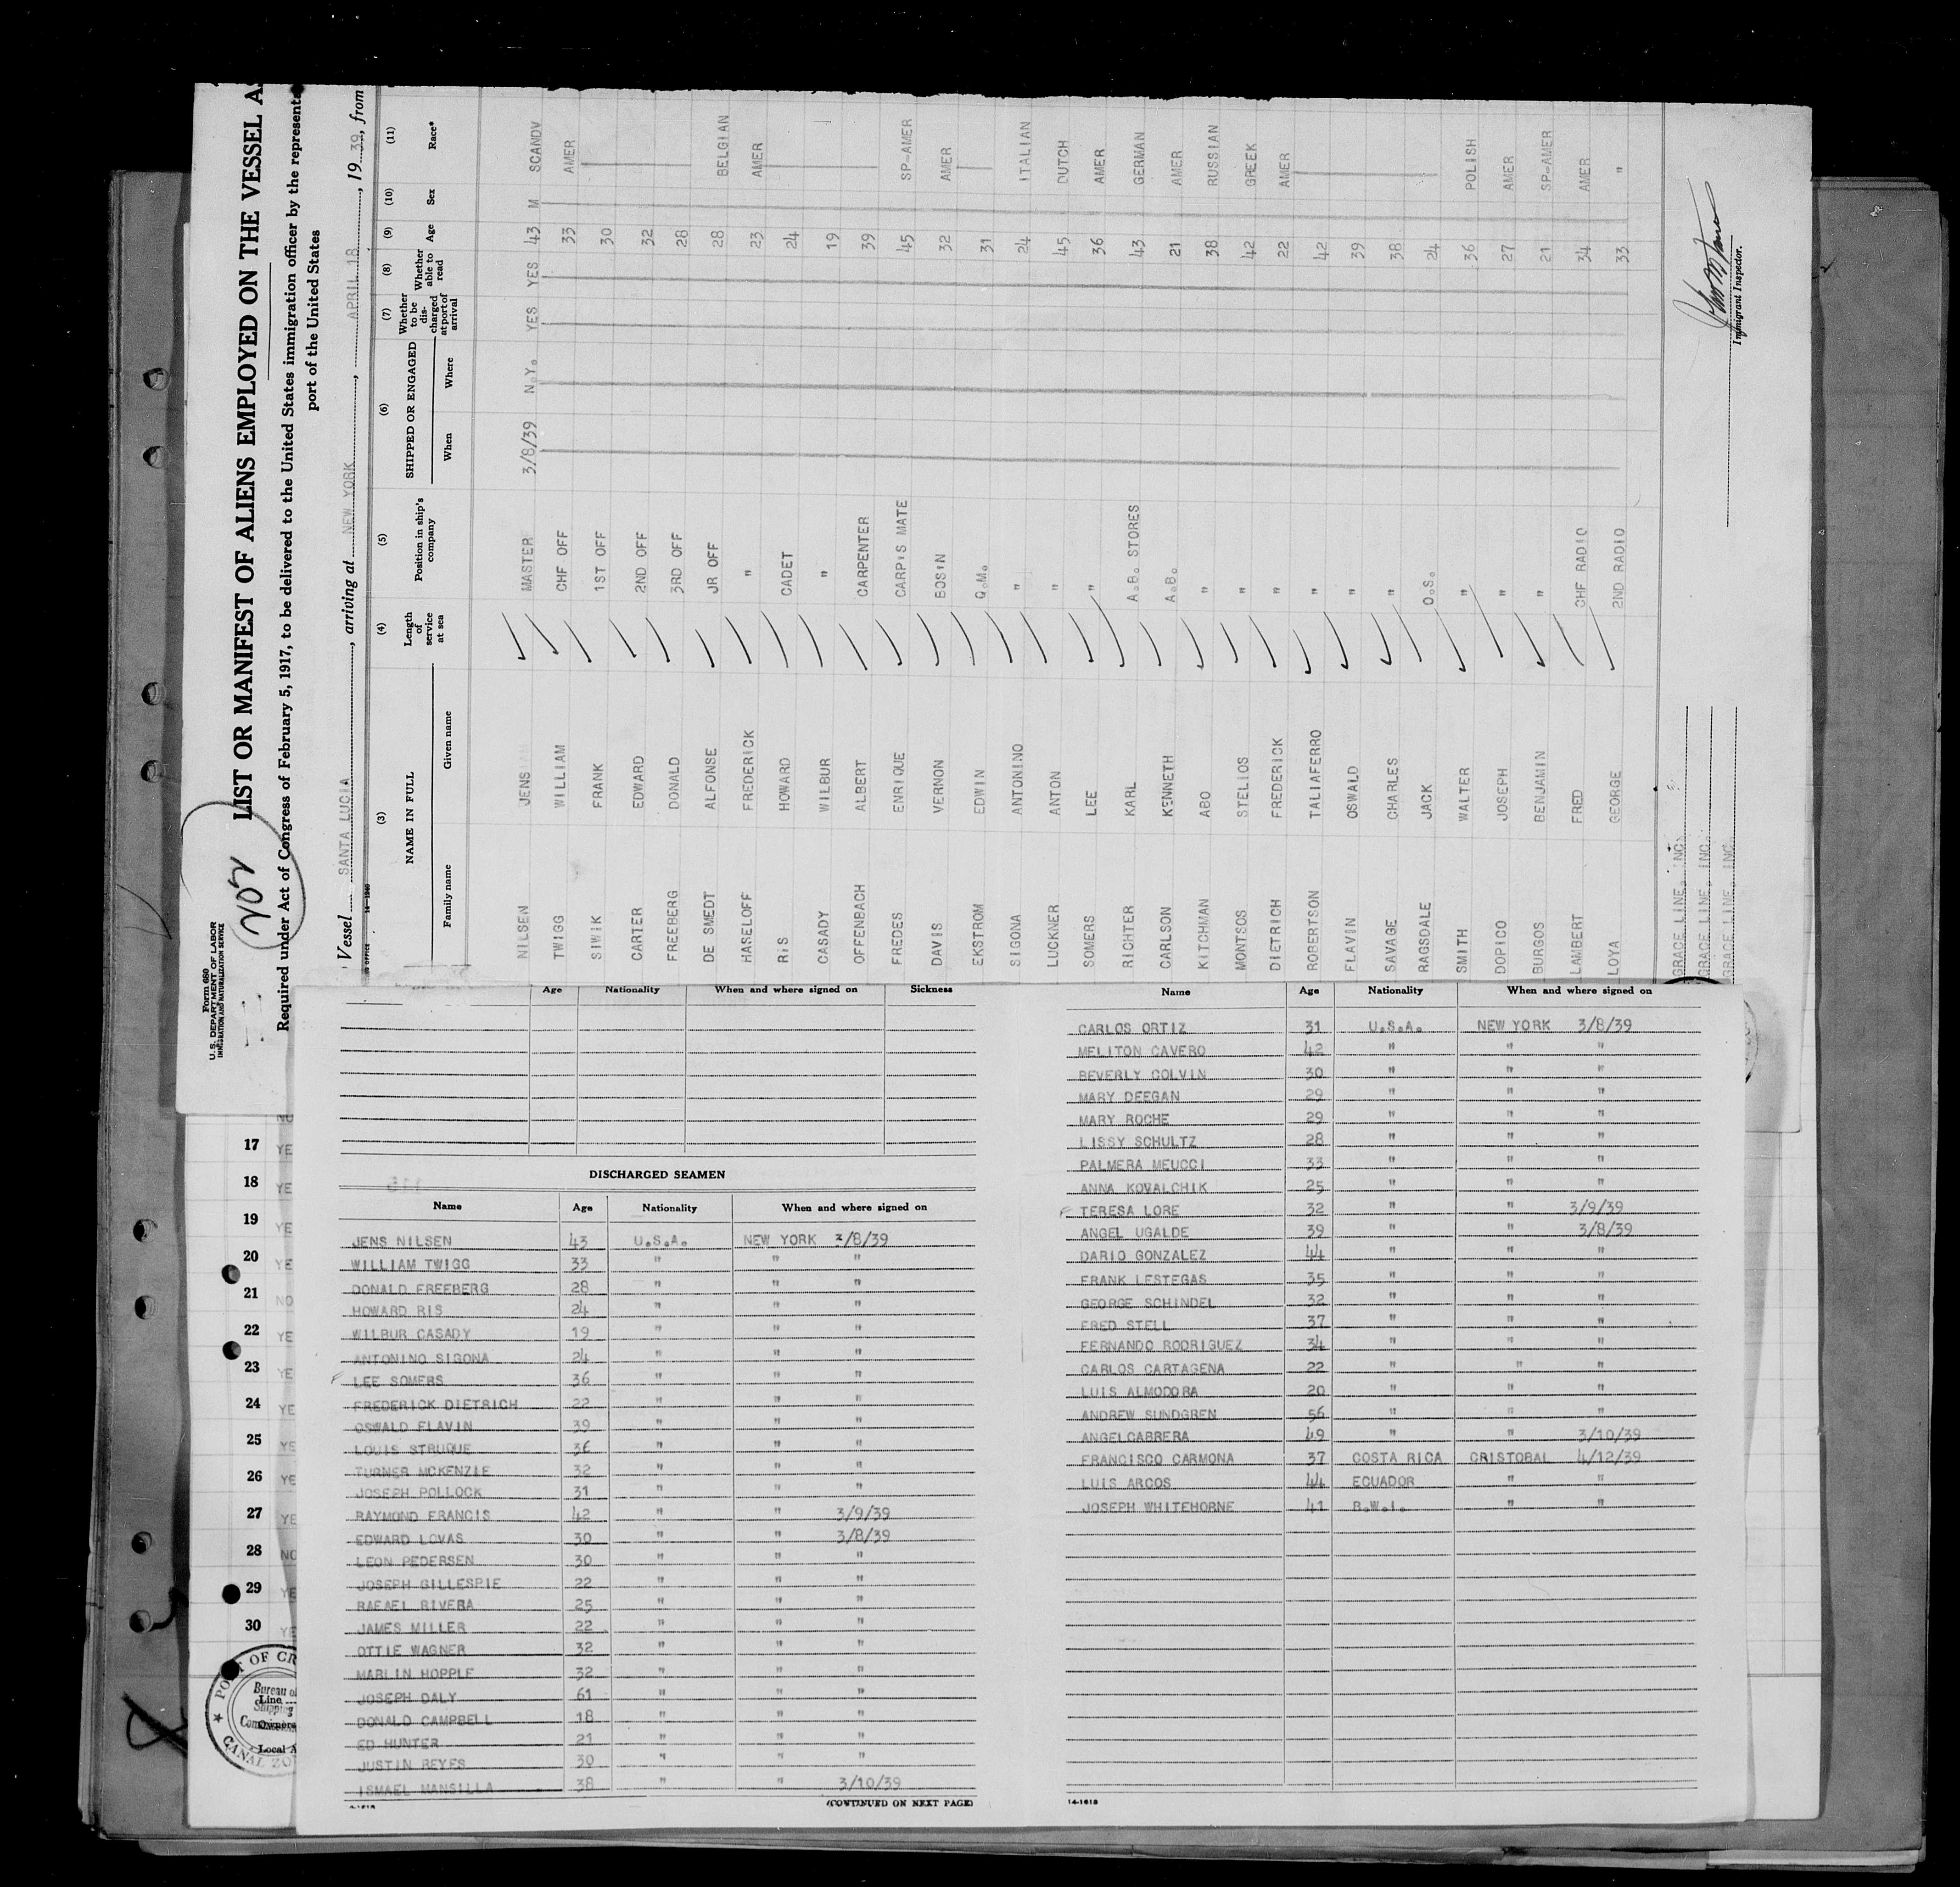 Form 680
U. S. DEPARTMENT OF LABOR
IMMIGRATION AND NATURALIZATION SERVICE
202
LIST OR MANIFEST OF ALIENS EMPLOYED ON THE VESSEL
Required under Act of Congress of February 5, 1917, to be delivered to the United States immigration officer by the
port of the United States
Vessel SANTA LUCIA, arriving at NEW YORK, APRIL 18, 1939, from
(3) (4) (5) (6) (7) (8) (9) (10) (11)
NAME IN FULL Length of service at sea Position in ship's company SHIPPED OR ENGAGED Whether to be discharged at port of arrival Whether able to read Age Sex Race*
Family name Given name When Where
NILSEN JENS MASTER 3/8/39 N.Y. YES YES 43 M SCANDV
TWIGG WILLIAM CHF OFF 33 AMER
SIWIK FRANK 1ST OFF 30
CARTER EDWARD 2ND OFF 32
FREEBERG DONALD 3RD OFF 28
DE SMEDT ALFONSE JR OFF 28 BELGIAN
HASELOFF FREDERICK " 23 AMER
RIS HOWARD CADET 24
CASADY WILBUR " 19
OFFENBACH ALBERT CARPENTER 39
FREDES ENRIQUE CARP'S MATE 45 SP-AMER
DAVIS VERNON BOSIN 32 AMER
EKSTROM EDWIN Q.M. 31
SIGONA ANTONINO " 24 ITALIAN
LUCKNER ANTON " 45 DUTCH
SOMERS LEE " 36 AMER
RICHTER KARL A.B. STORES 43 GERMAN
CARLSON KENNETH A.B. 21 AMER
KITCHMAN ABO " 38 RUSSIAN
MONTSOS STELIOS " 42 GREEK
DIETRICH FREDERICK " 22 AMER
ROBERTSON TALIAFERRO " 42
FLAVIN OSWALD " 39
SAVAGE CHARLES " 38
RAGSDALE JACK O.S. 24
SMITH WALTER " 36 POLISH
DOPICO JOSEPH " 27 AMER
BURGOS BENJAMIN " 21 SP-AMER
LAMBERT FRED CHF RADIO 34 AMER
LOYA GEORGE 2ND RADIO 33 "
GRACE LINE, INC.
GRACE LINE, INC.
GRACE LINE, INC.
Immigrant Inspector.
17
18
19
20
21
22
23
24
25
26
27
28
29
30
Age Nationality When and where signed on Sickness
DISCHARGED SEAMEN
Name Age Nationality When and where signed on
JENS NILSEN 43 U.S.A. NEW YORK 3/8/39
WILLIAM TWIGG 33 " " "
DONALD FREEBERG 28 " " "
HOWARD RIS 24 " " "
WILBUR CASADY 19 " " "
ANTONINO SIGONA 24 " " "
LEE SOMERS 36 " " "
FREDERICK DIETRICH 22 " " "
OSWALD FLAVIN 39 " " "
LOUIS STRUQUE 36 " " "
TURNER MCKENZIE 32 " " "
JOSEPH POLLOCK 31 " " "
RAYMOND FRANCIS 42 " " 3/9/39
EDWARD LOVAS 30 " " 3/8/39
LEON PEDERSEN 30 " " "
JOSEPH GILLESPIE 22 " " "
RAFAEL RIVERA 25 " " "
JAMES MILLER 22 " " "
OTTIE WAGNER 32 " " "
MARLIN HOPPLE 32 " " "
JOSEPH DALY 61 " " "
DONALD CAMPBELL 18 " " "
ED HUNTER 21 " " "
JUSTIN REYES 30 " " "
ISMAEL MANSILLA 38 " " 3/10/39
(CONTINUED ON NEXT PAGE)
Name Age Nationality When and where signed on
CARLOS ORTIZ 31 U.S.A. NEW YORK 3/8/39
MELITON CAVERO 42 " " "
BEVERLY COLVIN 30 " " "
MARY DEEGAN 29 " " "
MARY ROCHE 29 " " "
LISSY SCHULTZ 28 " " "
PALMERA MEUCCI 33 " " "
ANNA KOVALCHIK 25 " " "
TERESA LORE 32 " " 3/9/39
ANGEL UGALDE 39 " " 3/8/39
DARIO GONZALEZ 44 " " "
FRANK LESTEGAS 35 " " "
GEORGE SCHINDEL 32 " " "
FRED STELL 37 " " "
FERNANDO RODRIGUEZ 34 " " "
CARLOS CARTAGENA 22 " " "
LUIS ALMODORA 20 " " "
ANDREW SUNDGREN 56 " " "
ANGELCABRERA 49 " " 3/10/39
FRANCISCO CARMONA 37 COSTA RICA CRISTOBAL 4/12/39
LUIS ARCOS 44 ECUADOR " "
JOSEPH WHITEHORNE 41 B.W.I. " "
14-1618